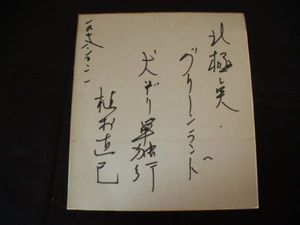 北極点・
グリーンランド
犬ぞり単独行
植村直己
一九七八・八・二一